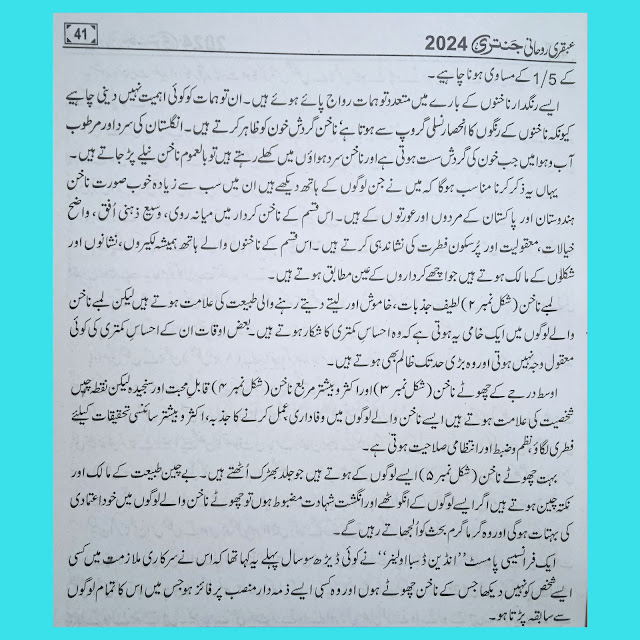 عبقری روحانی جنتری 2024
41
کے 1/5 کے مساوی ہونا چاہیے۔
ایسے رنگدار ناخنوں کے بارے میں متعدد توہمات رواج پائے ہوئے ہیں۔ ان توہمات کو کوئی اہمیت نہیں دینی چاہیے
کیونکہ ناخنوں کے رنگوں کا انحصار نسلی گروپ سے ہوتا ہے ناخن گردش خون کو ظاہر کرتے ہیں۔ انگلستان کی سرد اور مرطوب
آب و ہوا میں جب خون کی گردش سست ہوتی ہے اور ناخن سرد ہواؤں میں کھلے رہتے ہیں تو بالعموم ناخن نیلے پڑ جاتے ہیں۔
یہاں یہ ذکر کرنا مناسب ہوگا کہ میں نے جن لوگوں کے ہاتھ دیکھے ہیں ان میں سب سے زیادہ خوب صورت ناخن
ہندوستان اور پاکستان کے مردوں اور عورتوں کے ہیں۔ اس قسم کے ناخن کردار میں میانہ روی، وسیع ذہنی اُفق، واضح
خیالات، معقولیت اور پُرسکون فطرت کی نشاندہی کرتے ہیں۔ اس قسم کے ناخنوں والے ہاتھ ہمیشہ لکیروں، نشانوں اور
شکلوں کے مالک ہوتے ہیں جو اچھے کرداروں کے عین مطابق ہوتے ہیں۔
لمبے ناخن (شکل نمبر ۲) لطیف جذبات، خاموش اور لیتے دیتے رہنے والی طبیعت کی علامت ہوتے ہیں لیکن لمبے ناخن
والے لوگوں میں ایک خامی یہ ہوتی ہے کہ وہ احساسِ کمتری کا شکار ہوتے ہیں۔ بعض اوقات ان کے احساسِ کمتری کی کوئی
معقول وجہ نہیں ہوتی اور وہ بڑی حد تک ظالم بھی ہوتے ہیں۔
اوسط درجے کے چھوٹے ناخن (شکل نمبر ۳) اور اکثر و بیشتر مربع ناخن (شکل نمبر ۴) قابلِ محبت اور سنجیدہ لیکن نقطہ چیں
شخصیت کی علامت ہوتے ہیں ایسے ناخن والے لوگوں میں وفاداری، عمل کرنے کا جذبہ، اکثر و بیشتر سائنسی تحقیقات کیلئے
فطری لگاؤ، نظم و ضبط اور انتظامی صلاحیت ہوتی ہے۔
بہت چھوٹے ناخن (شکل نمبر ۵) ایسے لوگوں کے ہوتے ہیں جو جلد بھڑک اُٹھتے ہیں۔ بے چین طبیعت کے مالک اور
نکتہ چین ہوتے ہیں اگر ایسے لوگوں کے انگوٹھے اور انگشت شہادت مضبوط ہوں تو چھوٹے ناخن والے لوگوں میں خود اعتمادی
کی بہتات ہوگی اور وہ گرما گرم بحث کو اُلجھاتے رہیں گے۔
ایک فرانسیسی پامسٹ ”انڈین ڈسبا اولینر“ نے کوئی ڈیڑھ سو سال پہلے یہ کہا تھا کہ اس نے سرکاری ملازمت میں کسی
ایسے شخص کو نہیں دیکھا جس کے ناخن چھوٹے ہوں اور وہ کسی ایسے ذمہ دار منصب پر فائز ہو جس میں اس کا تمام لوگوں
سے سابقہ پڑتا ہو۔